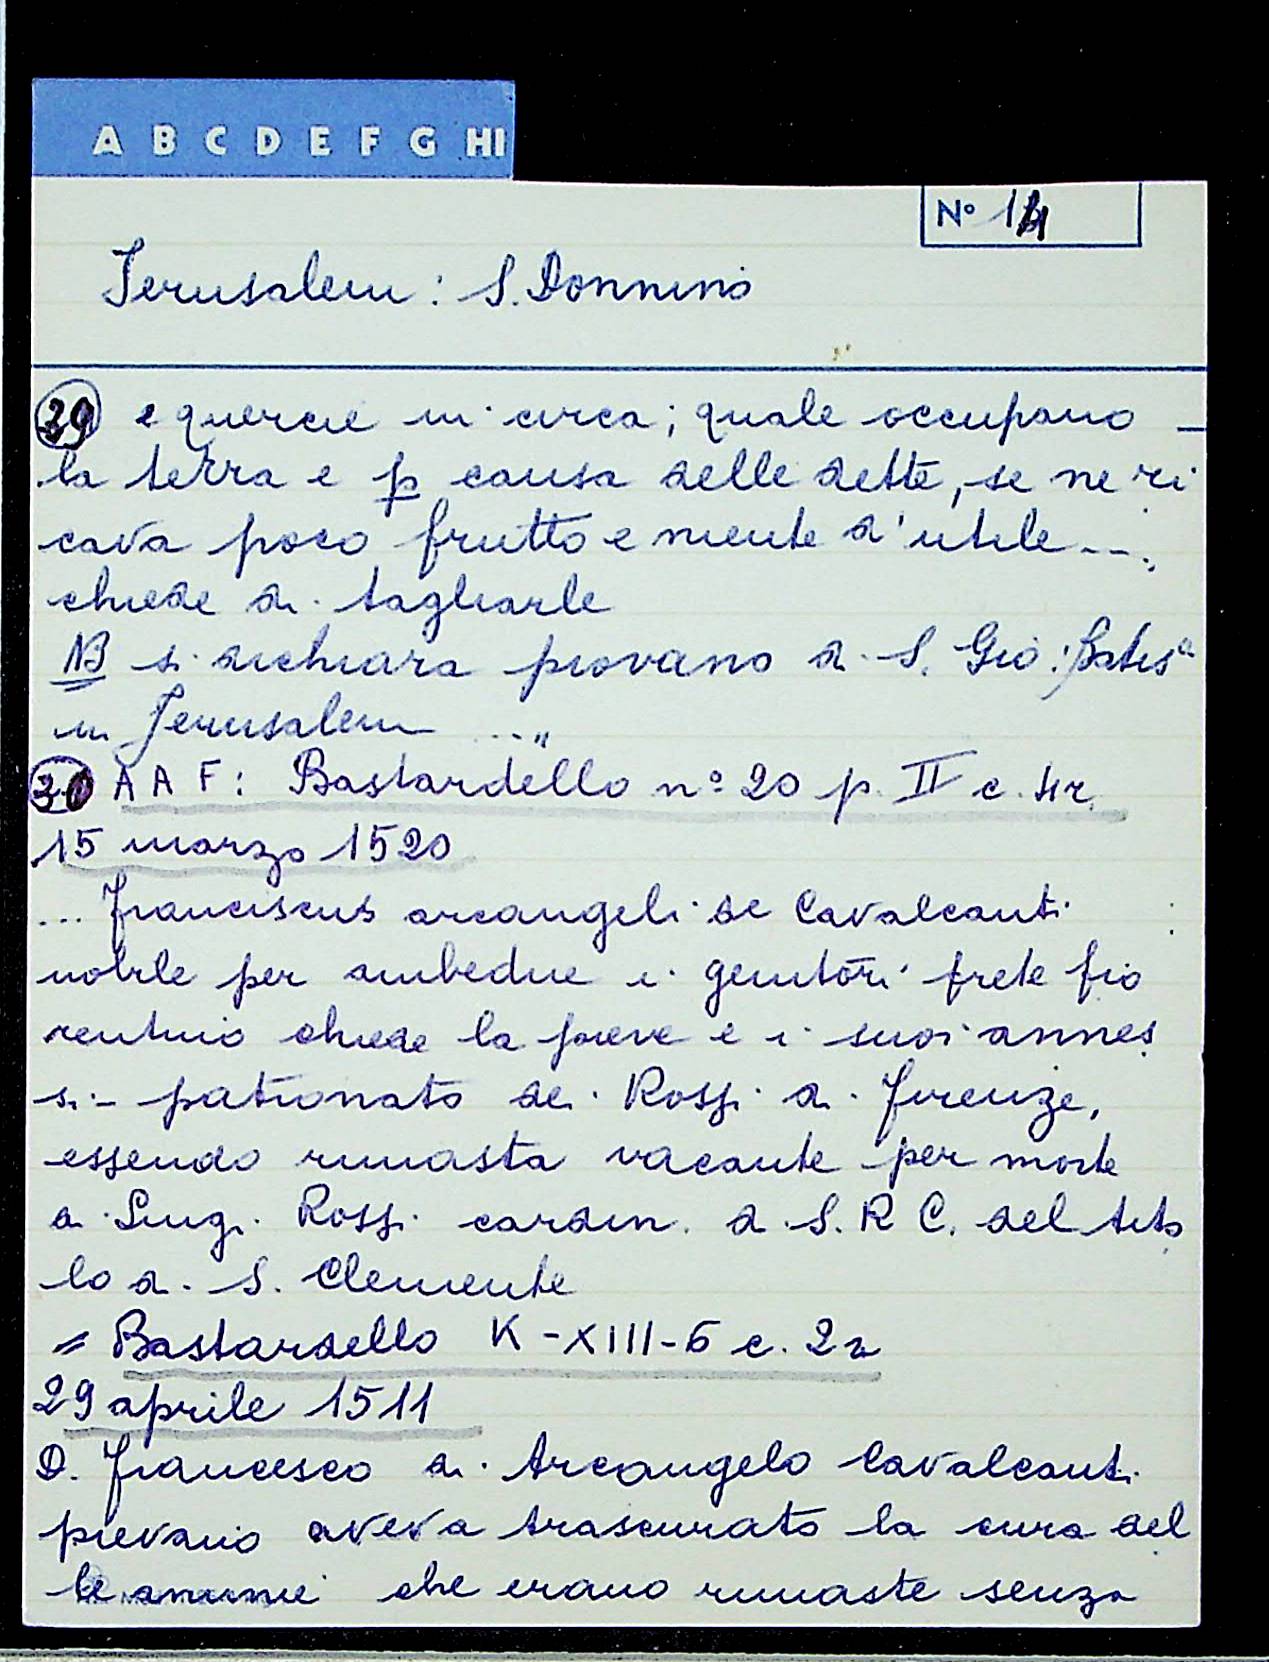 A B C D E F G HI
N° 14
Jerusalem: S. Donnino
29 e quercie in circa; quale occupano -
la terra e p causa delle dette, se ne ri
cava poco frutto e niente d'utile ---.
chiede di tagliarle
NB si dichiara piovano di S. Gio: Batisᵃ
in Jerusalem ..."
30 A A F: Bastardello n° 20 p. II c. 4r.
15 marzo 1520
... Franciscus arcangeli de Cavalcanti
nobile per ambedue i genitori prete fio
rentino chiede la pieve e i suoi annes
si - patronato dei Rossi di Firenze,
essendo rimasta vacante per morte
di Luigi Rossi cardin. d. S. R C. del tito
lo di S. Clemente
= Bastardello K-XIII-6 c. 2r
29 aprile 1511
D. Francesco di Arcangelo Cavalcanti
pievano aveva trascurato la cura del
le anime che erano rimaste senza